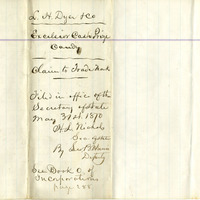 L. H. Dyer & Co
Excelsior Cash Prize
Candy
Claim to Trade Mark
Filed in office of the
Secretary of State
May 31st 1870
H. L. Nichols
Secy of State
By
Deputy
See Book C. of
Incorporations
page 288